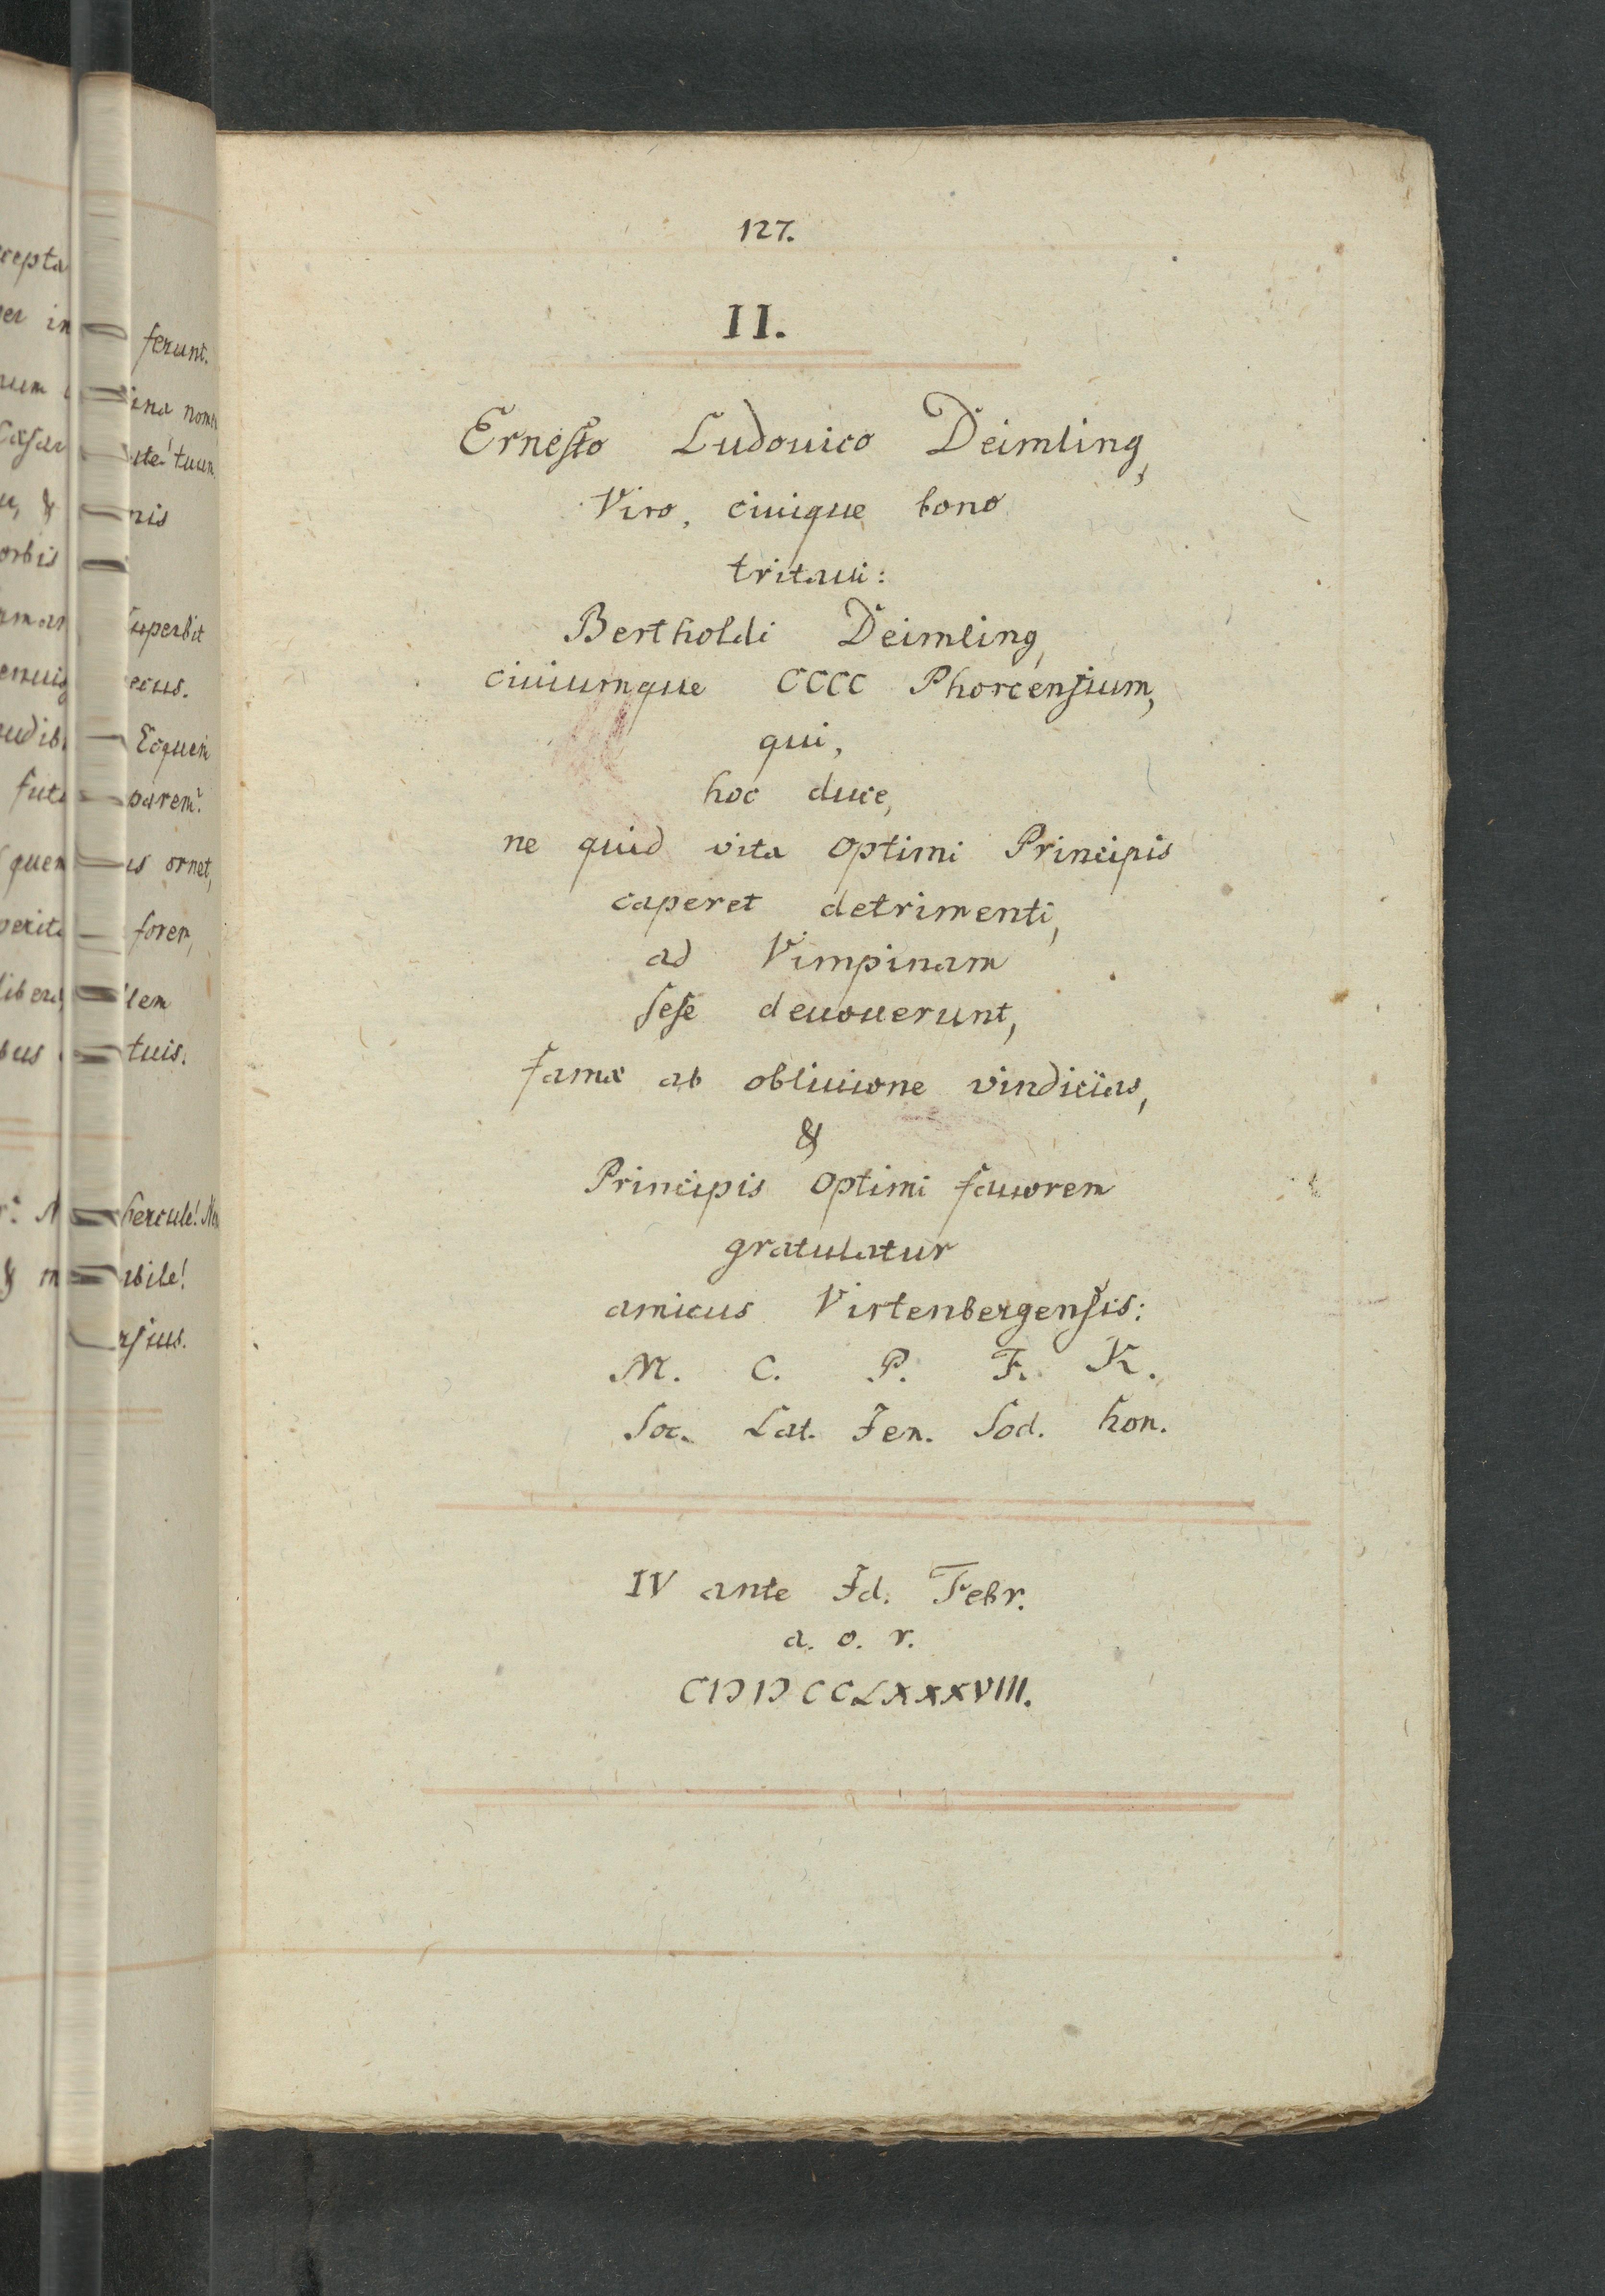 127.
II.
Ernesto Ludouico Deimling,
Viro, ciuique bono
tritaui:
Bertholdi Deimling,
ciuiumque CCCC Phorcensium,
qui,
hoc duce,
ne quid vita optimi Principis
caperet detrimenti,
ad Vimpinam
sese deuouerunt,
famæ ab obliuione vindicias,
&
Principis optimi fauorem
gratulatur
amicus Virtenbergensis:
M. C. P. F. K.
Soc. Lat. Jen. Sod. hon.
IV ante Id. Febr.
a. o. r.
CIƆIƆCCLXXXVIII.
ferunt.
nis
superbit
Ecquem
ornet,
forem,
tuis.
hercule!